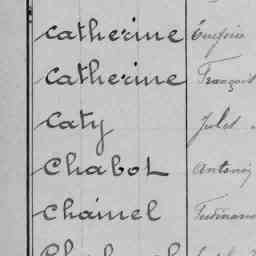 Catherine Eugène
Catherine François
Caty Jules
Chabot Antony
Chainel Ferdinand